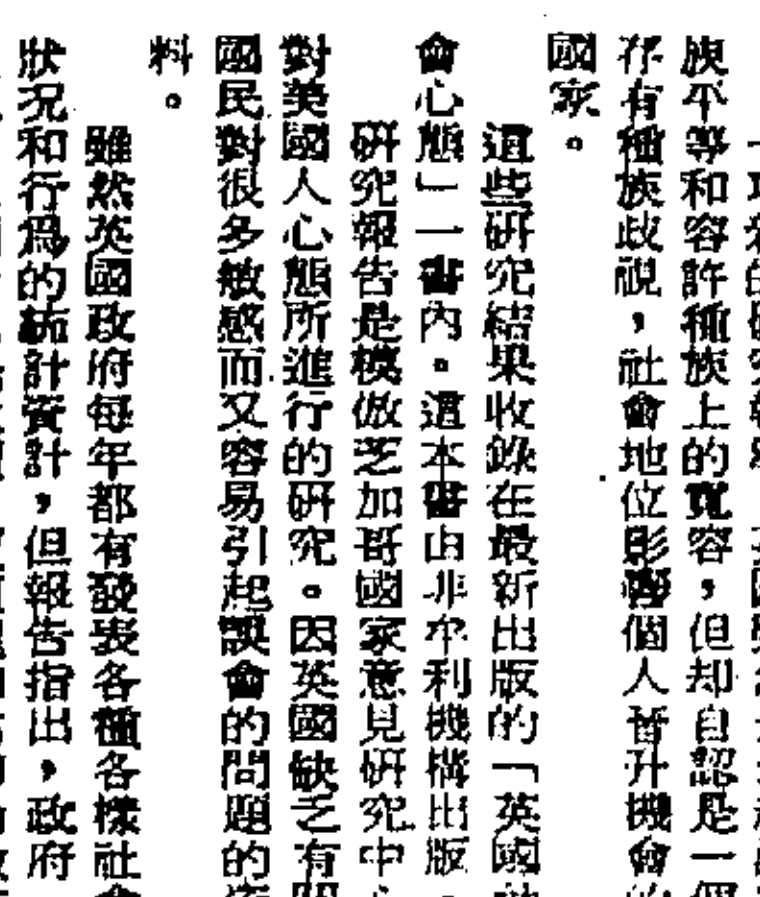 族平等和容許種族上的寬容，但却自認是一個
存有種族歧視，社會地位影響個人晉升機會的
國家。
這些研究結果收錄在最新出版的「英國社
會心態」一書內。這本書由非牟利機構出版。
研究報告是模倣芝加哥國家意見研究中心
對美國人心態所進行的研究。因英國缺乏有關
國民對很多敏感而又容易引起誤會的問題的資
料。
雖然英國政府每年都有發表各種各樣社會
狀況和行為的統計資計，但報告指出，政府